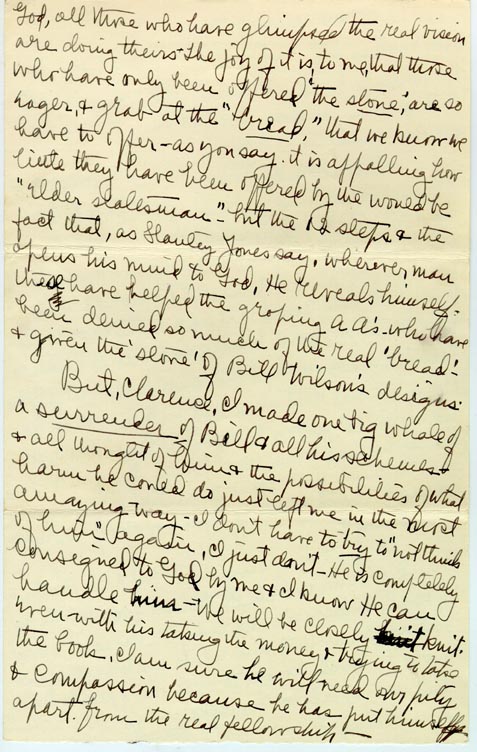 God, all those who have glimpsed the real vision
are doing theirs - the joy of it is, to me, that those
who have only been offered 'the stone,' are so
eager, & grab at the "bread," that we know we
have to offer - as you say. it is appalling how
little they have been offered by the would be
"elder statesman" - but the 12 steps & the
fact that, as Stanley Jones say, wherever man
opens his mind to God, He reveals himself -
these have helped the groping A A's - who have
been denied so much of the real 'bread' -
& given the 'stone' of Bill Wilson's designs.
But, Clarence, I made one big whale of
a surrender of Bill & all his schemes -
& all thought of him & the possibilities of what
harm he could do just left me in the most
amazing way - I don't have to try to "not think
of him" again, I just don't - He is completely
consigned to God by me & I know He can
handle him - We will be closely knit knit.
even - with his taking the money & trying to take
the book. I am sure he will need our pity
& compassion because he has put himself
apart. from the real fellowship -